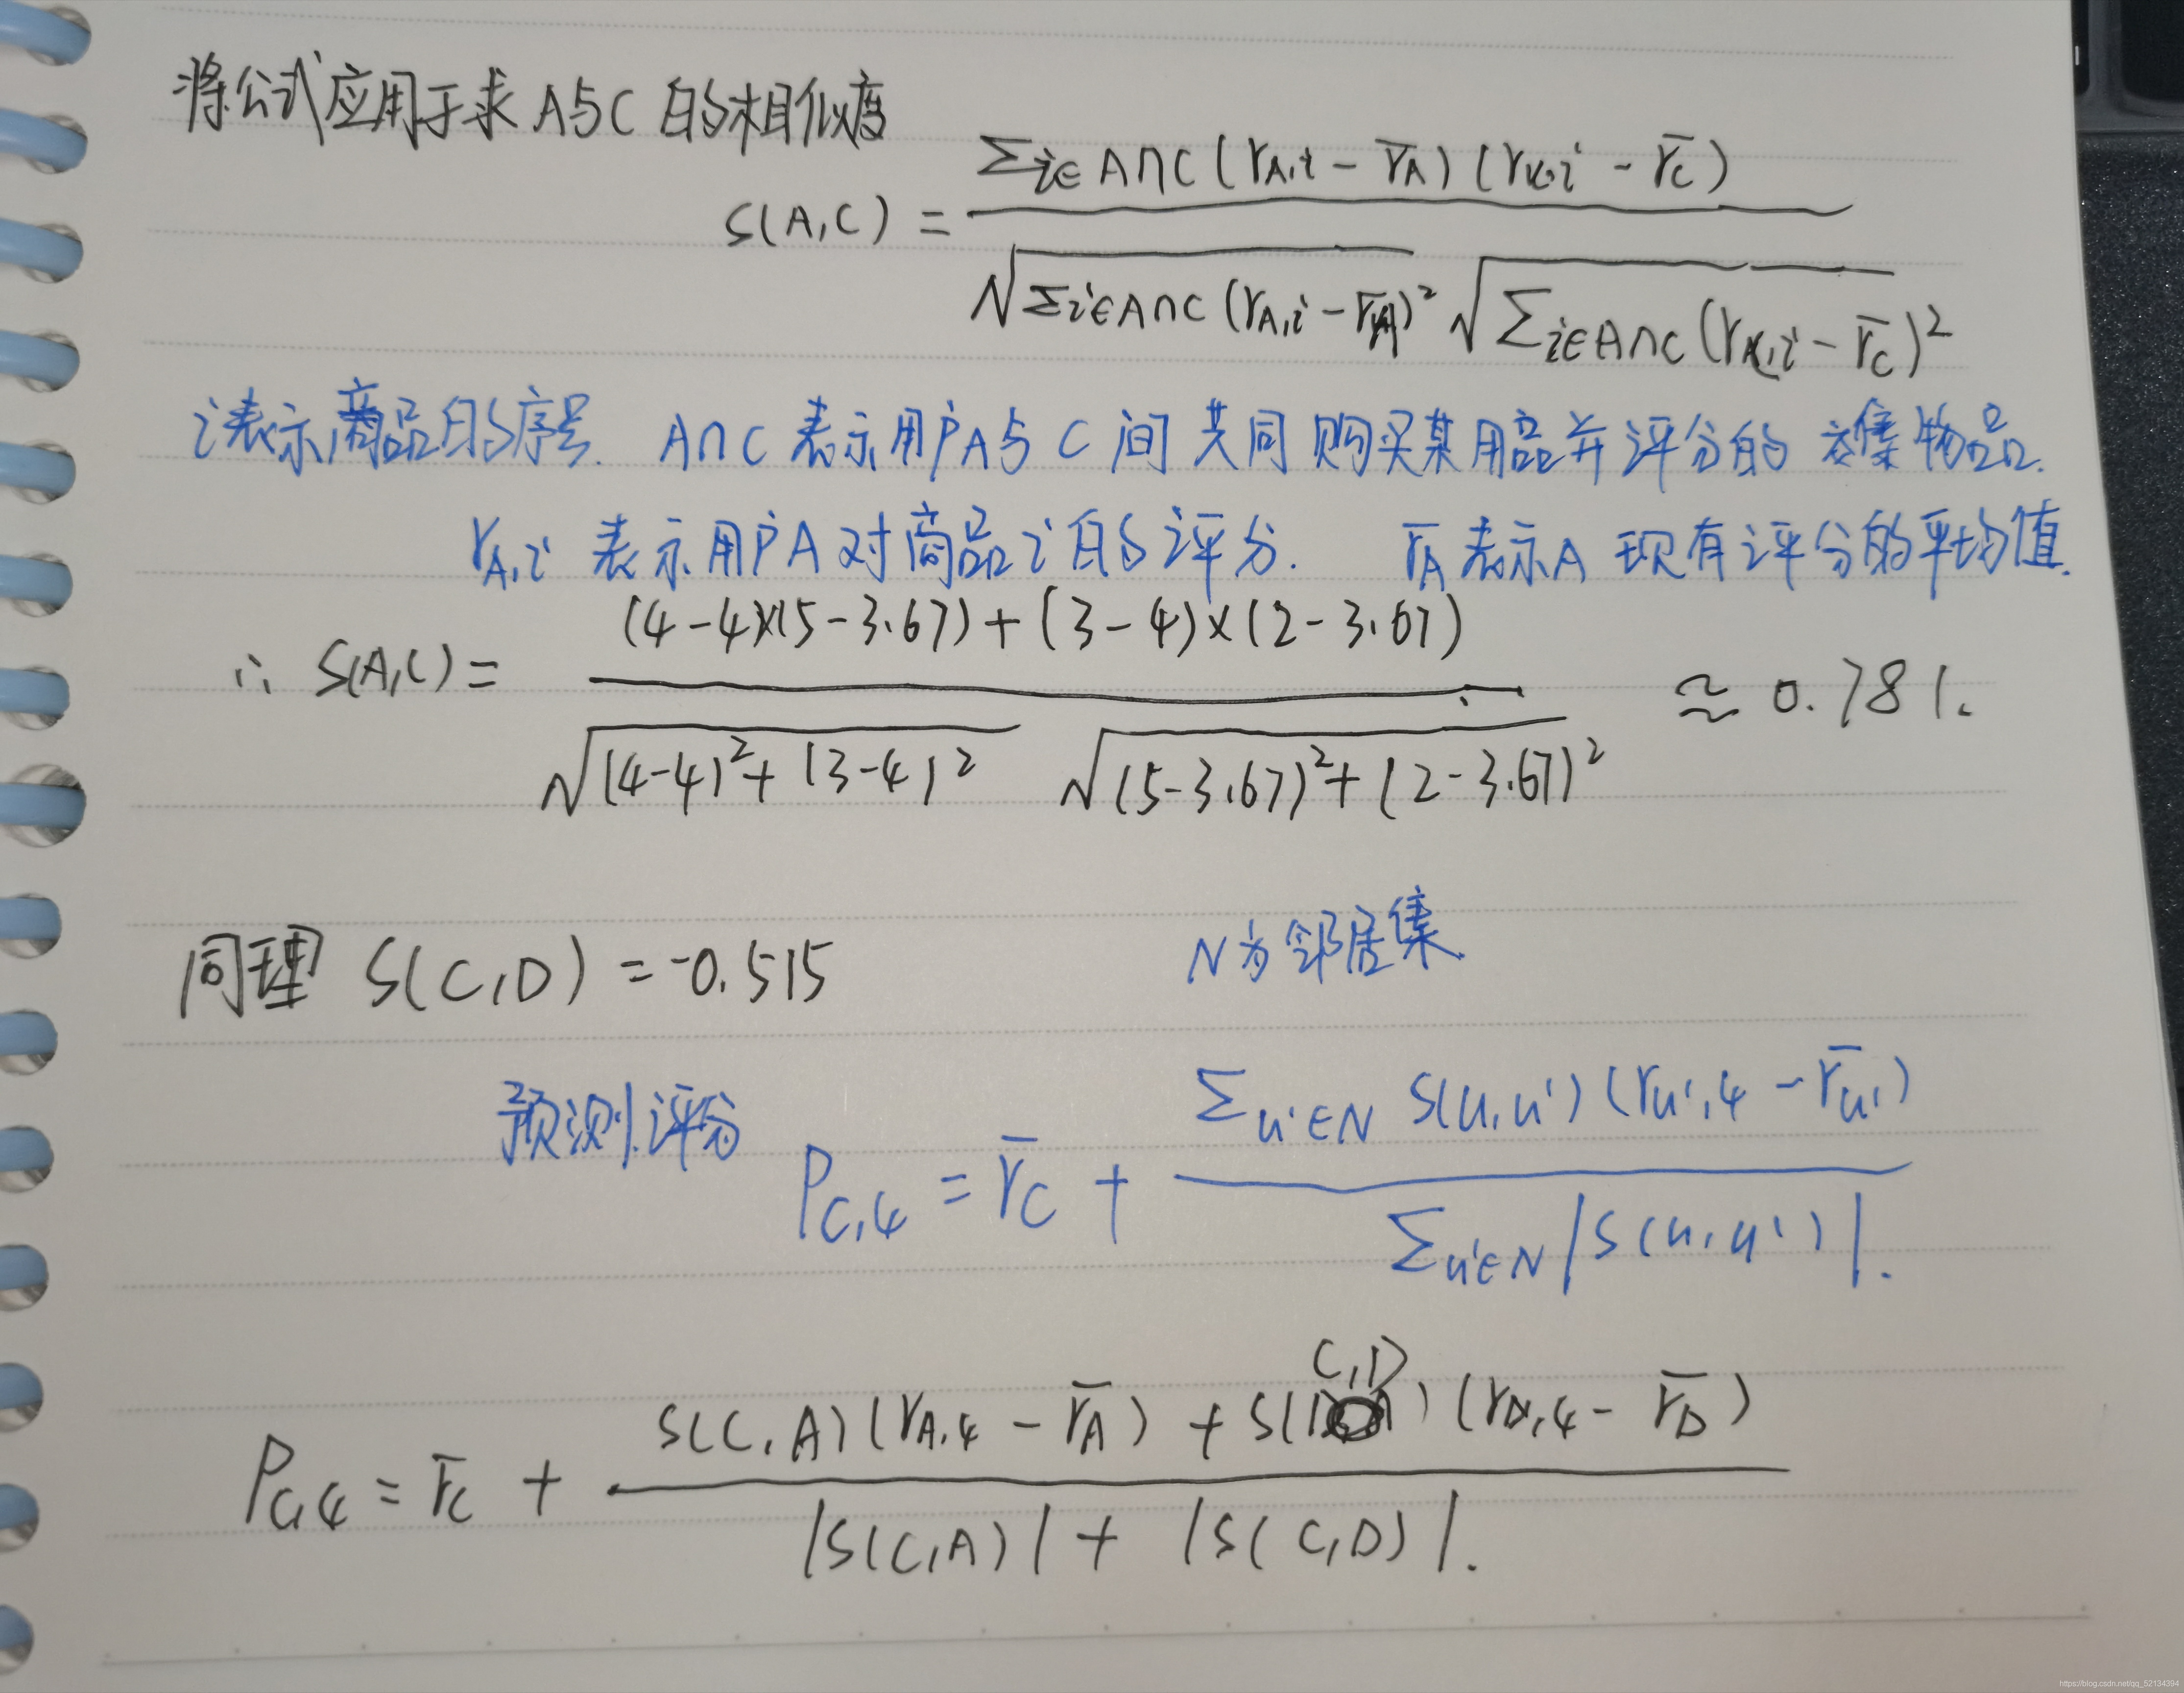 将公式应用于求A与C的相似度
S(A,C) = \frac{\sum_{i∈A∩C}(r_{A,i} - \bar{r_A})(r_{C,i} - \bar{r_C})}{\sqrt{\sum_{i∈A∩C}(r_{A,i} - \bar{r_A})^2}\sqrt{\sum_{i∈A∩C}(r_{C,i} - \bar{r_C})^2}}
i表示商品的序号. A∩C 表示用户A与C间共同购买某用品并评分的交集物品.
r_{A,i} 表示用户A对商品i的评分. \bar{r_A}表示A现有评分的平均值.
∴ S(A,C) = \frac{(4-4)×(5-3.67)+(3-4)×(2-3.67)}{\sqrt{(4-4)^2+(3-4)^2}\sqrt{(5-3.67)^2+(2-3.67)^2}} ≈ 0.781.
同理 S(C,D) = -0.515 N为邻居集.
预测评分 P_{C,4} = \bar{r_C} + \frac{\sum_{u'∈N} S(u,u')(r_{u',4} - \bar{r_{u'}})}{\sum_{u'∈N}|S(u,u')|}.
P_{C,4} = \bar{r_C} + \frac{S(C,A)(r_{A,4} - \bar{r_A}) + S(C,D)(r_{D,4} - \bar{r_D})}{|S(C,A)| + |S(C,D)|}.
https://blog.csdn.net/qq_52134394